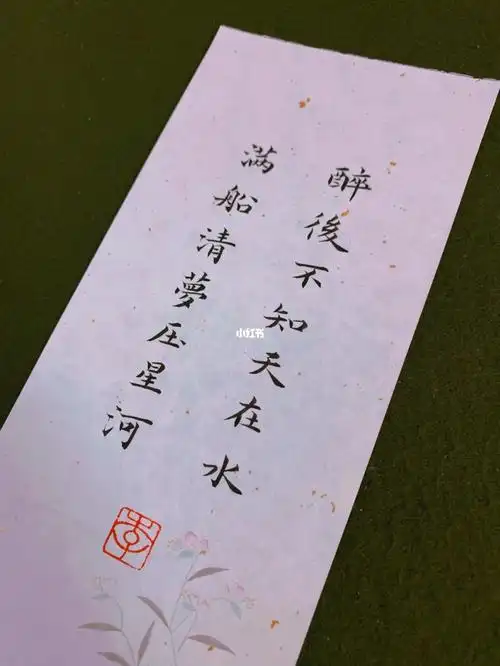 醉後不知天在水
满船清夢压星河
小红书